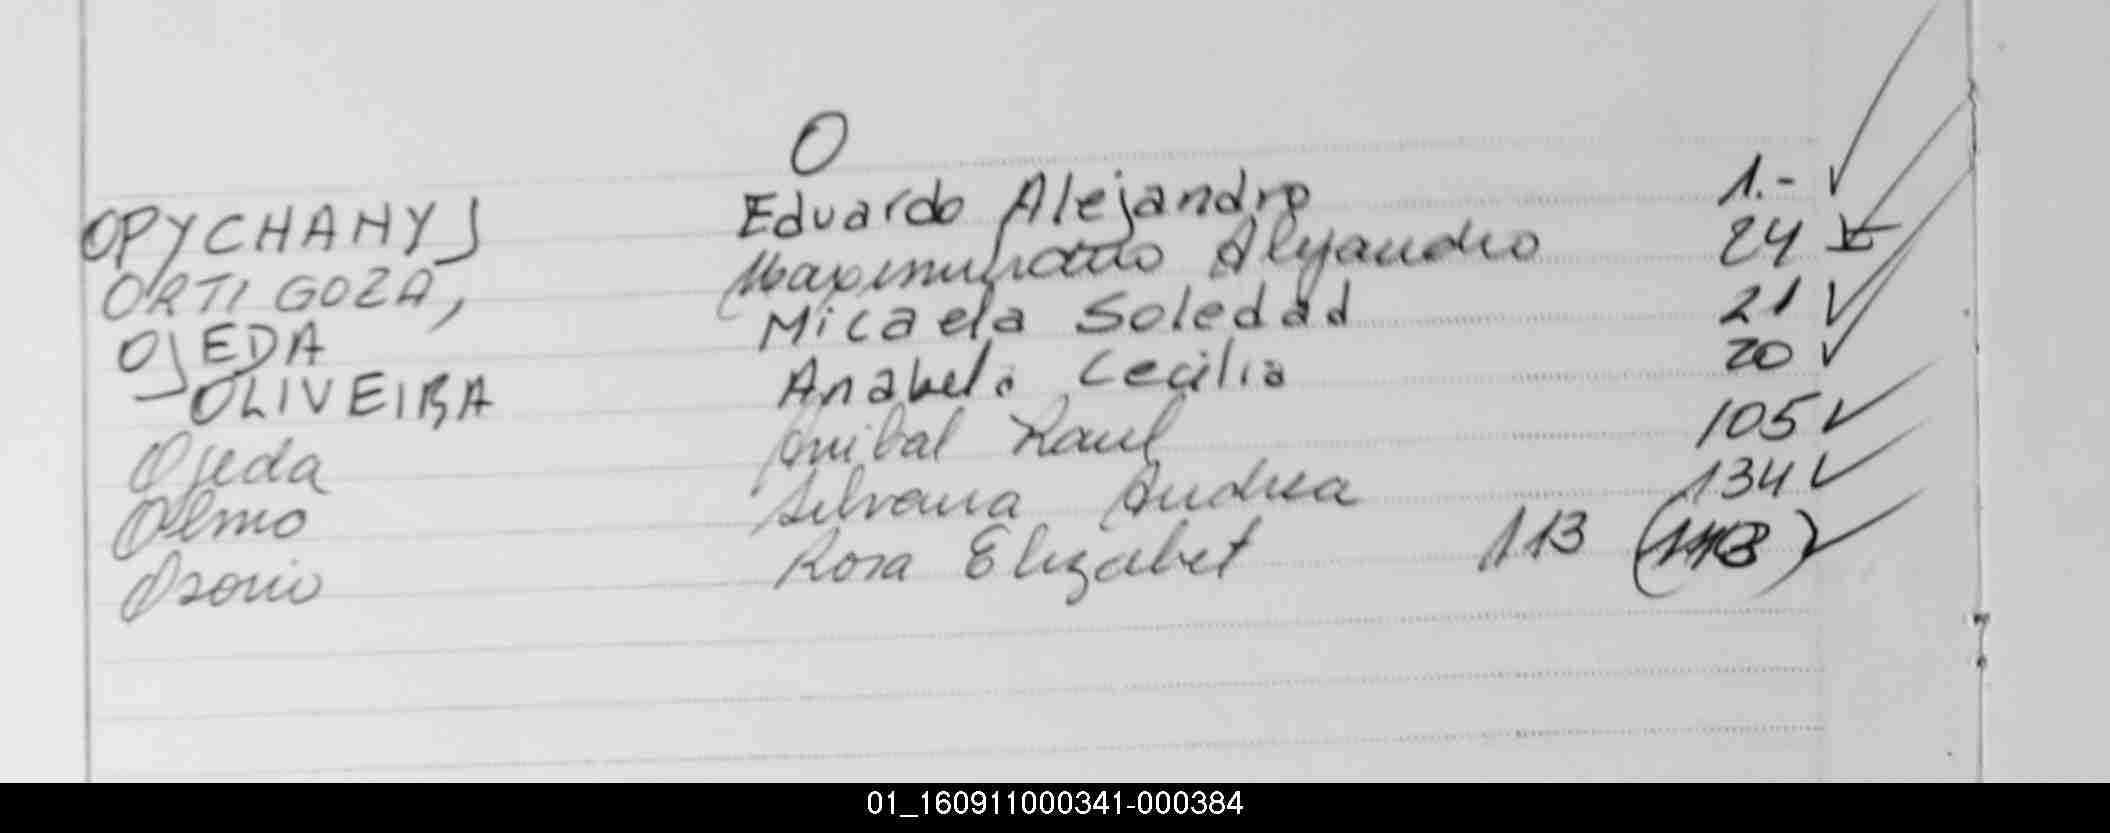 O
OPYCHANYJ Eduardo Alejandro 1.-
ORTIGOZA, Maximiliano Alejandro 24
OJEDA Micaela Soledad 21
OLIVEIRA Anabela Cecilia 20
Ojeda Anibal Raul 105
Olmo Silvana Andrea 134
Osorio Rosa Elizabet 113 (113)
01_160911000341-000384